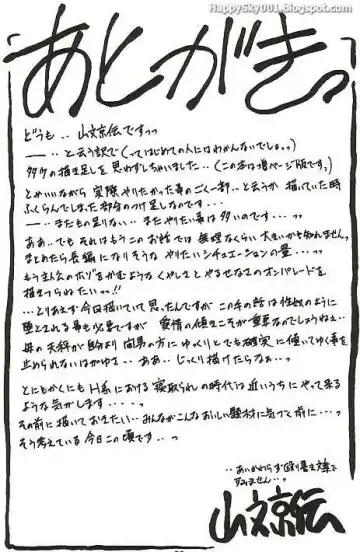 HappySky001.blogspot.com
あとがきっ
どうも‥山文京伝ですっっ
―‥と云う訳で(ってはじめての人にはわかんないでしょっっ)
多少の描き足しを思わずしちゃいました‥(この本は増ページ版ですっ)
とかいいながら実際やりたかった事のごく一部‥と云うか描いていた時
ふくらんでしまった部分のつけ足しなのです・・・
―‥まだもの足りない‥まだやりたい事は多いのです・・・っ
ああ‥でもそれはもうこのお話では無理なくらい大きいかも知れません。
まとめたら長編になりそうなやりたいシチュエーションの量・・・っ
もう主人公のホゾをかむようなくやしさとやるせなさのオンパレードを
描きつらねたいっっ!!
・・・とりあえず今回描いていて思ったんですがこの手の話は性奴のように
堕とされる事も必要ですが愛情の傾きこそが重要なのでしょうねぇ‥
母の天秤が自分より間男の方にゆっくりとでも確実に傾いてゆく事を
止められないはがゆさ‥ああ‥じっくり描けたらなぁ‥っ
とにもかくにもH系における寝取られの時代は近いうちにやって来る
ような気がします・・・・っ
その前に描いておきたい‥みんながこんなおいしい題材に気づく前に・・・っ
そう考えている今日この頃です‥っ
‥あいかわらず殴り書き文章で
すみません‥っ
山文京伝